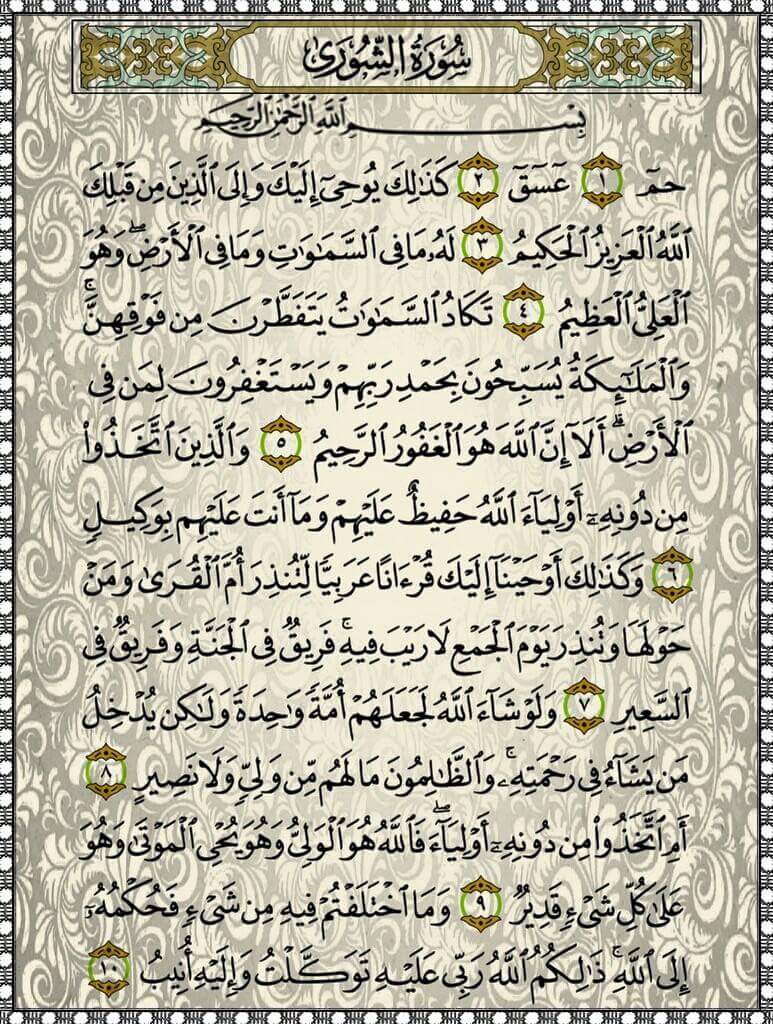 سُورَةُ الشُّورَىٰ
بِسْمِ ٱللَّهِ ٱلرَّحْمَٰنِ ٱلرَّحِيمِ
حمٓ ١ عٓسٓقٓ ٢ كَذَٰلِكَ يُوحِىٓ إِلَيْكَ وَإِلَى ٱلَّذِينَ مِن قَبْلِكَ
ٱللَّهُ ٱلْعَزِيزُ ٱلْحَكِيمُ ٣ لَهُۥ مَا فِى ٱلسَّمَٰوَٰتِ وَمَا فِى ٱلْأَرْضِ ۖ وَهُوَ
ٱلْعَلِىُّ ٱلْعَظِيمُ ٤ تَكَادُ ٱلسَّمَٰوَٰتُ يَتَفَطَّرْنَ مِن فَوْقِهِنَّ ۚ
وَٱلْمَلَٰٓئِكَةُ يُسَبِّحُونَ بِحَمْدِ رَبِّهِمْ وَيَسْتَغْفِرُونَ لِمَن فِى
ٱلْأَرْضِ ۗ أَلَآ إِنَّ ٱللَّهَ هُوَ ٱلْغَفُورُ ٱلرَّحِيمُ ٥ وَٱلَّذِينَ ٱتَّخَذُوا۟
مِن دُونِهِۦٓ أَوْلِيَآءَ ٱللَّهُ حَفِيظٌ عَلَيْهِمْ وَمَآ أَنتَ عَلَيْهِم بِوَكِيلٍ
٦ وَكَذَٰلِكَ أَوْحَيْنَآ إِلَيْكَ قُرْءَانًا عَرَبِيًّا لِّتُنذِرَ أُمَّ ٱلْقُرَىٰ وَمَنْ
حَوْلَهَا وَتُنذِرَ يَوْمَ ٱلْجَمْعِ لَا رَيْبَ فِيهِ ۚ فَرِيقٌ فِى ٱلْجَنَّةِ وَفَرِيقٌ فِى
ٱلسَّعِيرِ ٧ وَلَوْ شَآءَ ٱللَّهُ لَجَعَلَهُمْ أُمَّةً وَٰحِدَةً وَلَٰكِن يُدْخِلُ
مَن يَشَآءُ فِى رَحْمَتِهِۦ ۚ وَٱلظَّٰلِمُونَ مَا لَهُم مِّن وَلِىٍّ وَلَا نَصِيرٍ ٨
أَمِ ٱتَّخَذُوا۟ مِن دُونِهِۦٓ أَوْلِيَآءَ ۖ فَٱللَّهُ هُوَ ٱلْوَلِىُّ وَهُوَ يُحْىِ ٱلْمَوْتَىٰ وَهُوَ
عَلَىٰ كُلِّ شَىْءٍ قَدِيرٌ ٩ وَمَا ٱخْتَلَفْتُمْ فِيهِ مِن شَىْءٍ فَحُكْمُهُۥٓ
إِلَى ٱللَّهِ ۚ ذَٰلِكُمُ ٱللَّهُ رَبِّى عَلَيْهِ تَوَكَّلْتُ وَإِلَيْهِ أُنِيبُ ١٠